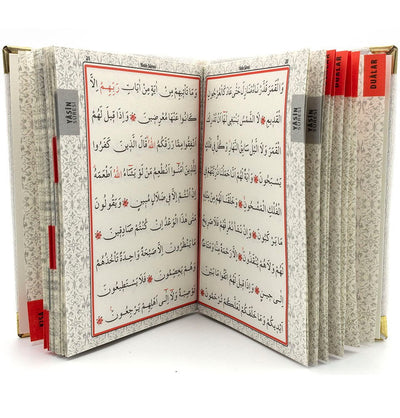 وَالْقَمَرَ قَدَّرْنَاهُ مَنَازِلَ حَتّٰى عَادَ كَالْعُرْجُونِ
الْقَدِيمِ ❋ لَا الشَّمْسُ يَنْبَغِى لَهَٓا اَنْ تُدْرِكَ
الْقَمَرَ وَلَا الَّيْلُ سَابِقُ النَّهَارِ وَكُلٌّ فِى فَلَكٍ
يَسْبَحُونَ ❋ وَاٰيَةٌ لَهُمْ اَنَّا حَمَلْنَا ذُرِّيَّتَهُمْ فِى
الْفُلْكِ الْمَشْحُونِ ❋ وَخَلَقْنَا لَهُمْ مِنْ مِثْلِهِ
مَا يَرْكَبُونَ ❋ وَاِنْ نَشَأْ نُغْرِقْهُمْ فَلَا صَرِيخَ
لَهُمْ وَلَا هُمْ يُنْقَذُونَ ❋ اِلَّا رَحْمَةً مِنَّا وَمَتَاعًا
اِلٰى حِينٍ ❋ وَاِذَا قِيلَ لَهُمُ اتَّقُوا مَا بَيْنَ
اَيْدِيكُمْ وَمَا خَلْفَكُمْ لَعَلَّكُمْ تُرْحَمُونَ
وَمَا تَأْتِيهِمْ مِنْ اٰيَةٍ مِنْ اٰيَاتِ رَبِّهِمْ اِلَّا
كَانُوا عَنْهَا مُعْرِضِينَ ❋ وَاِذَا قِيلَ لَهُمْ
اَنْفِقُوا مِمَّا رَزَقَكُمُ اللهُ قَالَ الَّذِينَ كَفَرُوا
لِلَّذِينَ اٰمَنُٓوا اَنُطْعِمُ مَنْ لَوْ يَشَٓاءُ اللهُ اَطْعَمَهُ
اِنْ اَنْتُمْ اِلَّا فِى ضَلَالٍ مُبِينٍ ❋ وَيَقُولُونَ
مَتٰى هٰذَا الْوَعْدُ اِنْ كُنْتُمْ صَادِقِينَ ❋
مَا يَنْظُرُونَ اِلَّا صَيْحَةً وَاحِدَةً تَأْخُذُهُمْ
وَهُمْ يَخِصِّمُونَ ❋ فَلَا يَسْتَطِيعُونَ
تَوْصِيَةً وَلَٓا اِلٰٓى اَهْلِهِمْ يَرْجِعُونَ ❋
YASİN
YASİN
DUALAR
DUALAR